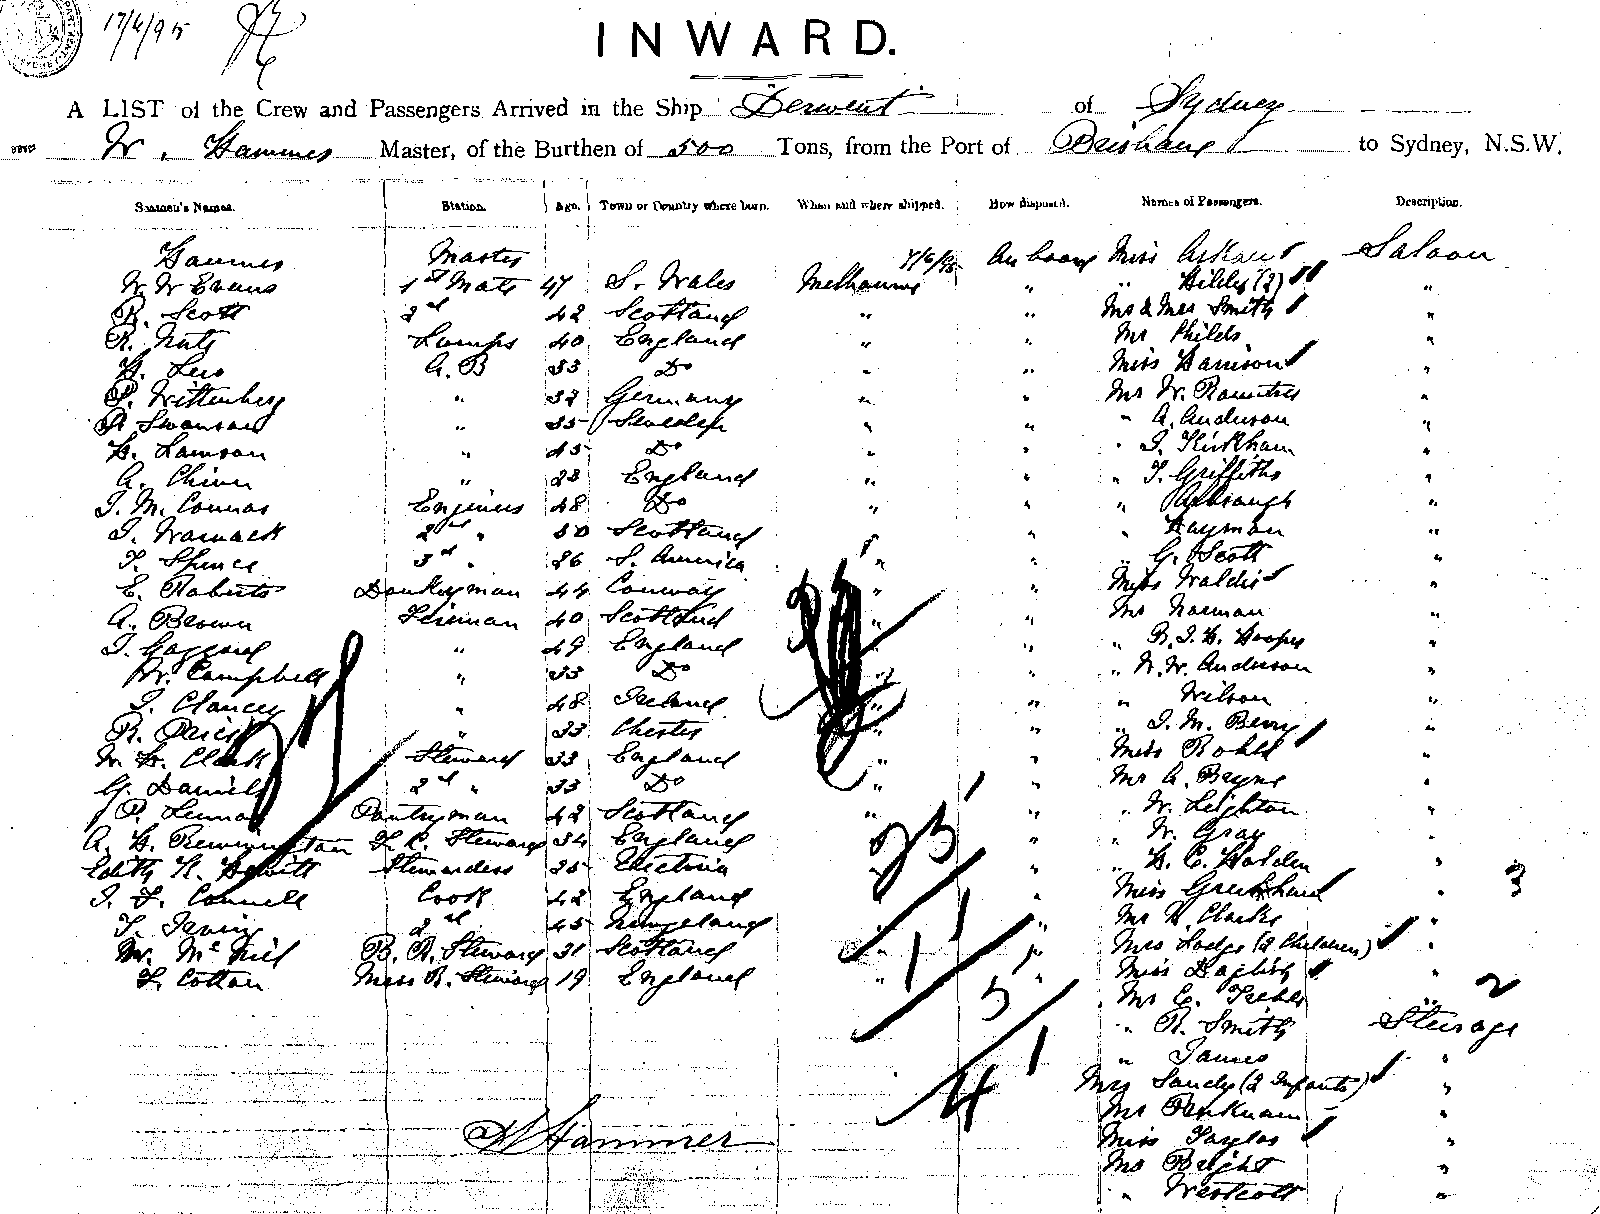 17/6/95
INWARD.
A LIST of the Crew and Passengers Arrived in the Ship Derwent of Sydney
W. Hammer Master, of the Burthen of 500 Tons, from the Port of Brisbane to Sydney, N.S.W.
Seamen's Names. Station. Age. Town or Country where born. When and where shipped. How disposed. Names of Passengers. Description.
Hammer Master 7/6/95 On board Miss Saloon
W. W Evans 1st Mate 47 S. Wales Melbourne " " Hilly (2) "
R. Scott 2nd 42 Scotland " " Mr & Mrs Smith "
R. Lamps 40 England " " Mr Philds "
H. A. B 33 Do " " Miss Harrison "
P. Wittenberg " 32 Germany " " Mr W. Rowntree "
Swanson " 35 Sweden " " " A. Anderson "
H. Lawson " 45 Do " " " J. Kirkham "
A. " 23 England " " " T. Griffiths "
J. M. Connor Engineer 48 Do " " " "
J. Warnack 2nd " 50 Scotland " " Hayman "
T. Spence 3rd " 36 S. America " " " G. Scott "
E. Roberts Donkeyman 44 Conway " " Miss "
A. Brown Fireman 40 Scotland " " Mr Norman "
J. " 49 England " " " R. J. H. Hooper "
W. Campbell " 33 Do " " " W. W. Anderson "
J. Clancy " 48 Ireland " " " Wilson "
R. Price " 33 Chester " " " J. M. Berry "
W. H. Clark Steward 33 England " " Miss "
G. Daniels 2nd " 33 Do " " Mr A. Bryne "
P. Lennox Pantryman 42 Scotland " " " W. Leighton "
A. H. Remmington F. C. Steward 34 England " " W. Gray "
Edith K. Hewitt Stewardess 35 Victoria " " H. C. Holden "
J. F. Connell Cook 42 England " Miss " 3
T. Irving 2nd 45 " Mr H Clarke "
Wm. McNeil B. R. Steward 31 Scotland " " Mrs Lodge (2 Children) "
F. Cotton Mess R. Steward 19 England " " Miss "
23 1 1 5 1 4 1
Mr C. 2
" R. Smith Steerage
" James "
Mrs Sandy (2 Infants) "
Mr "
W Hammer Miss Taylor "
Mr Bright "
" Westcott "